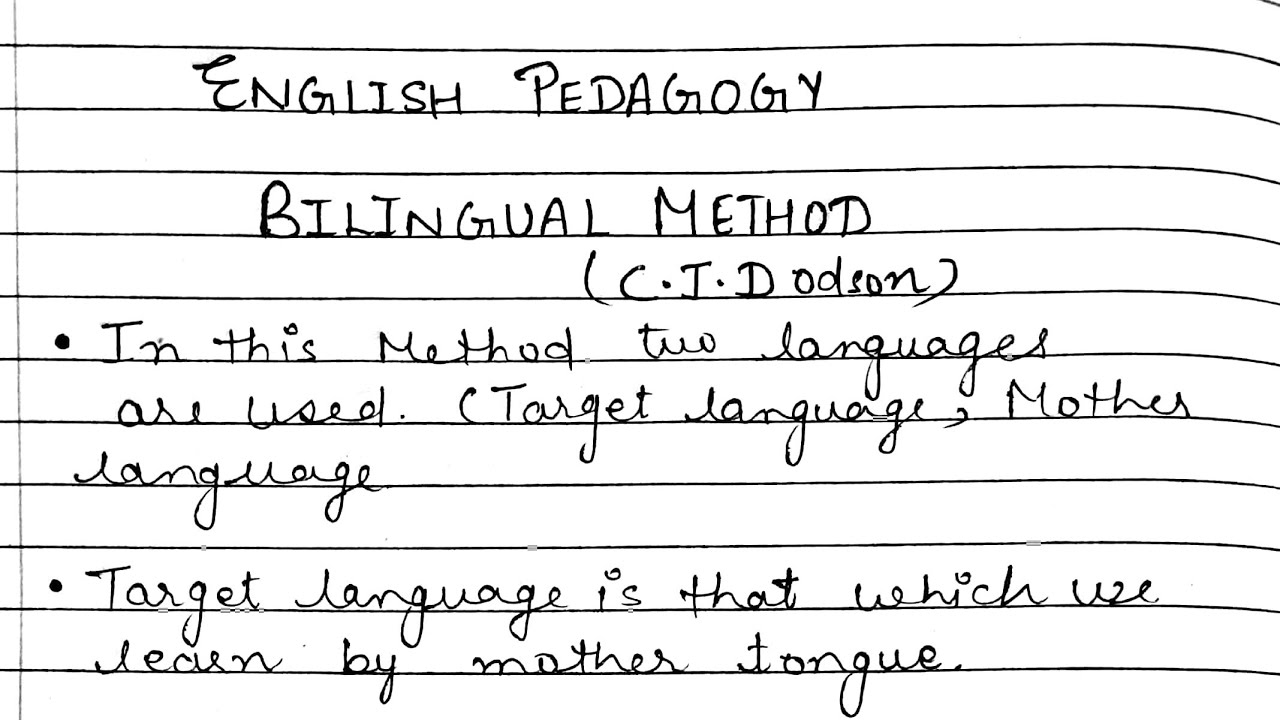 ENGLISH PEDAGOGY
BILINGUAL METHOD
(C.J.Dodson)
• In this Method two languages
are used. (Target language, Mother
language
• Target language is that which we
learn by mother tongue.